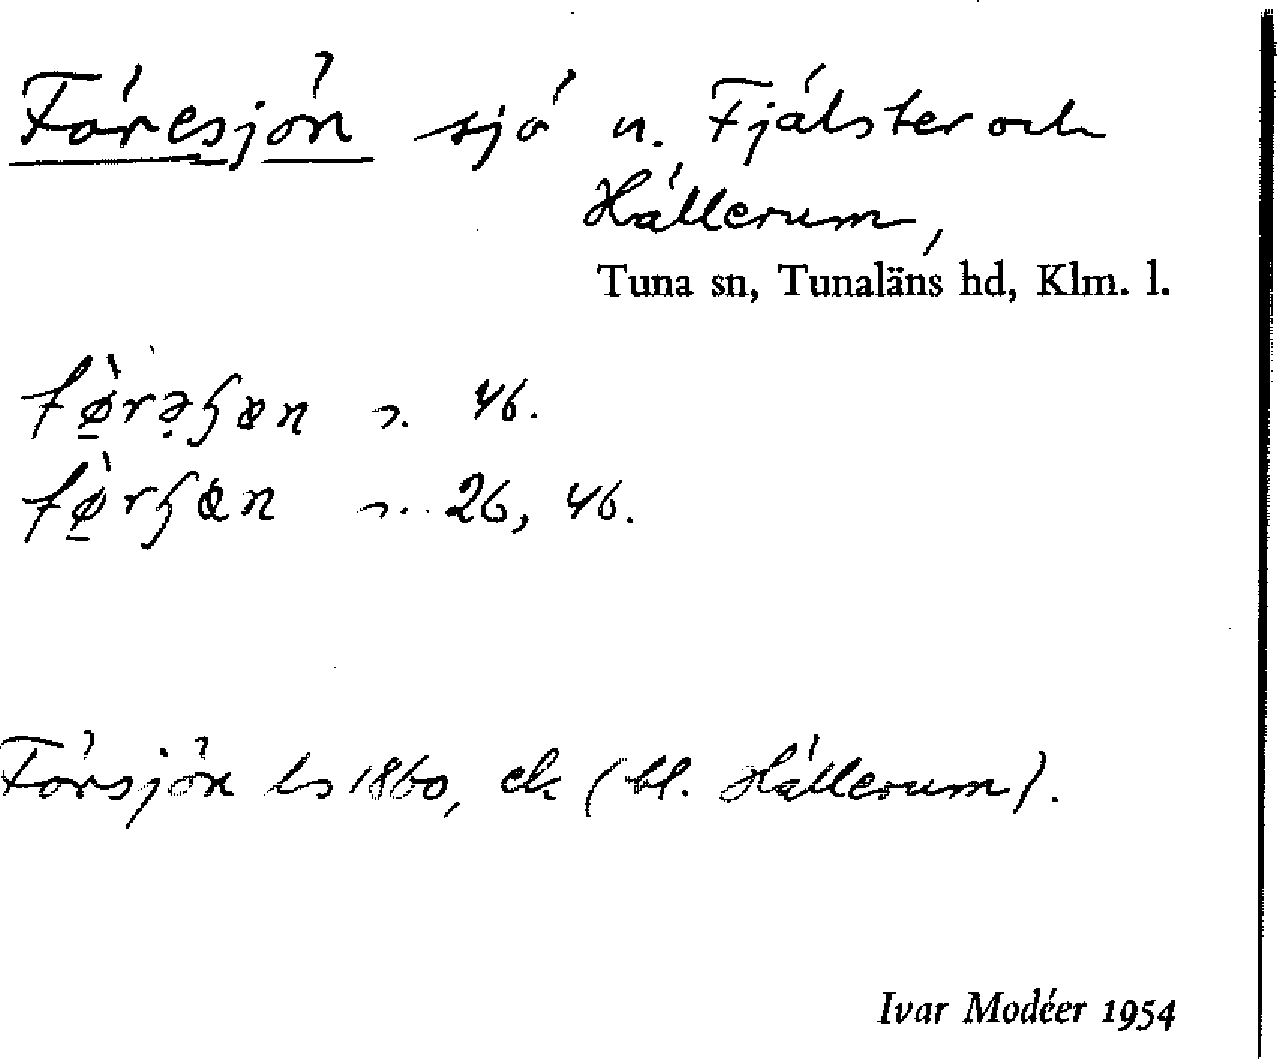 Föresjön sjö n. Fjälster och
Hällerum,
Tuna sn, Tunaläns hd, Klm. l.
46.
26, 46.
Försjön ls 1860, ek (bl. Hällerum).
Ivar Modéer 1954